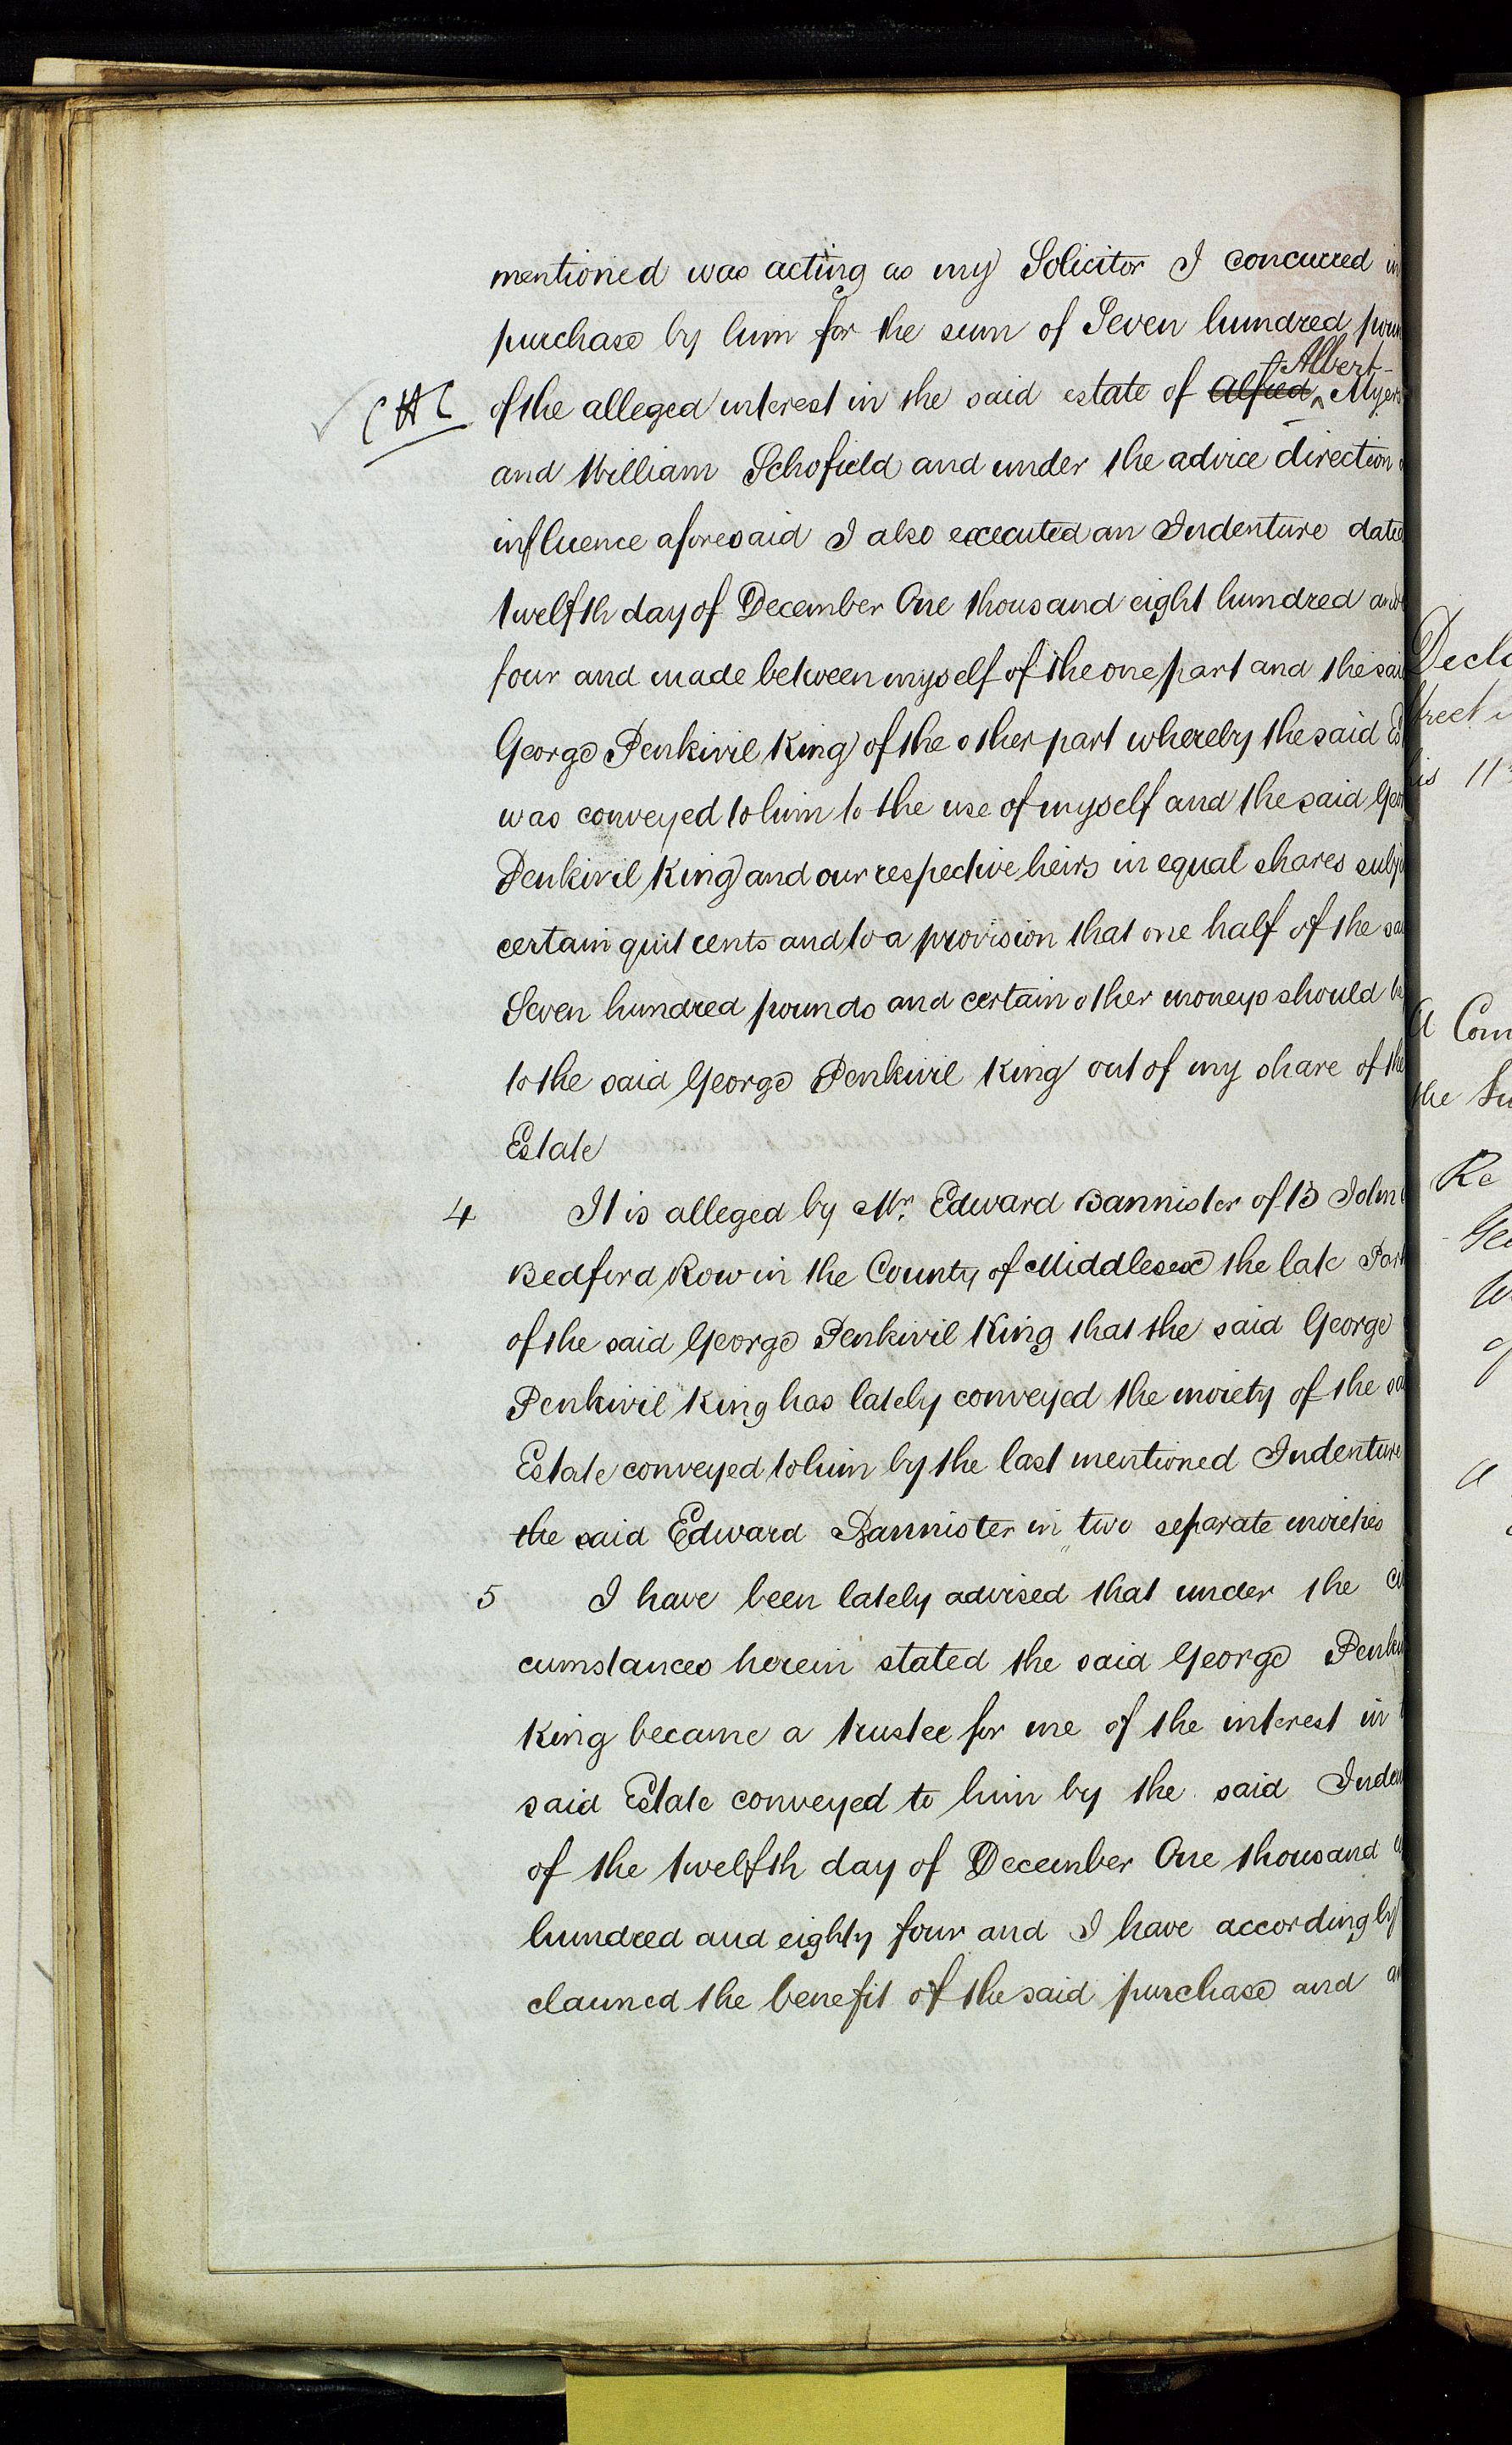 mentioned was acting as my Solicitor I concurred in
purchase by him for the sum of Seven hundred poun
Albert
CHC of the alleged interest in the said estate of Alfred Myers
and William Schofield and under the advice direction
influence aforesaid I also executed an Indenture dated
twelfth day of December One thousand eight hundred and
four and made between myself of the one part and the said
George Penkivil King of the other part whereby the said Es
was conveyed to him to the use of myself and the said Geor
Penkivil King and our respective heirs in equal shares subje
certain quit rents and to a provision that one half of the sai
Seven hundred pounds and certain other moneys should b
to the said George Penkivil King out of my share of the
Estate
4 It is alleged by Mr. Edward Bannister of 13 John
Bedford Row in the County of Middlesex the late Part
of the said George Penkivil King that the said George
Penkivil King has lately conveyed the moiety of the sa
Estate conveyed to him by the last mentioned Indenture
the said Edward Bannister in two separate moieties
5 I have been lately advised that under the cir
cumstances herein stated the said George Penkiv
King became a trustee for me of the interest in t
said Estate conveyed to him by the said Inden
of the twelfth day of December One thousand e
hundred and eighty four and I have accordingly
claimed the benefit of the said purchase and am
Decla
treet
is 11
A Com
the Su
Re
Geo
W
of
a